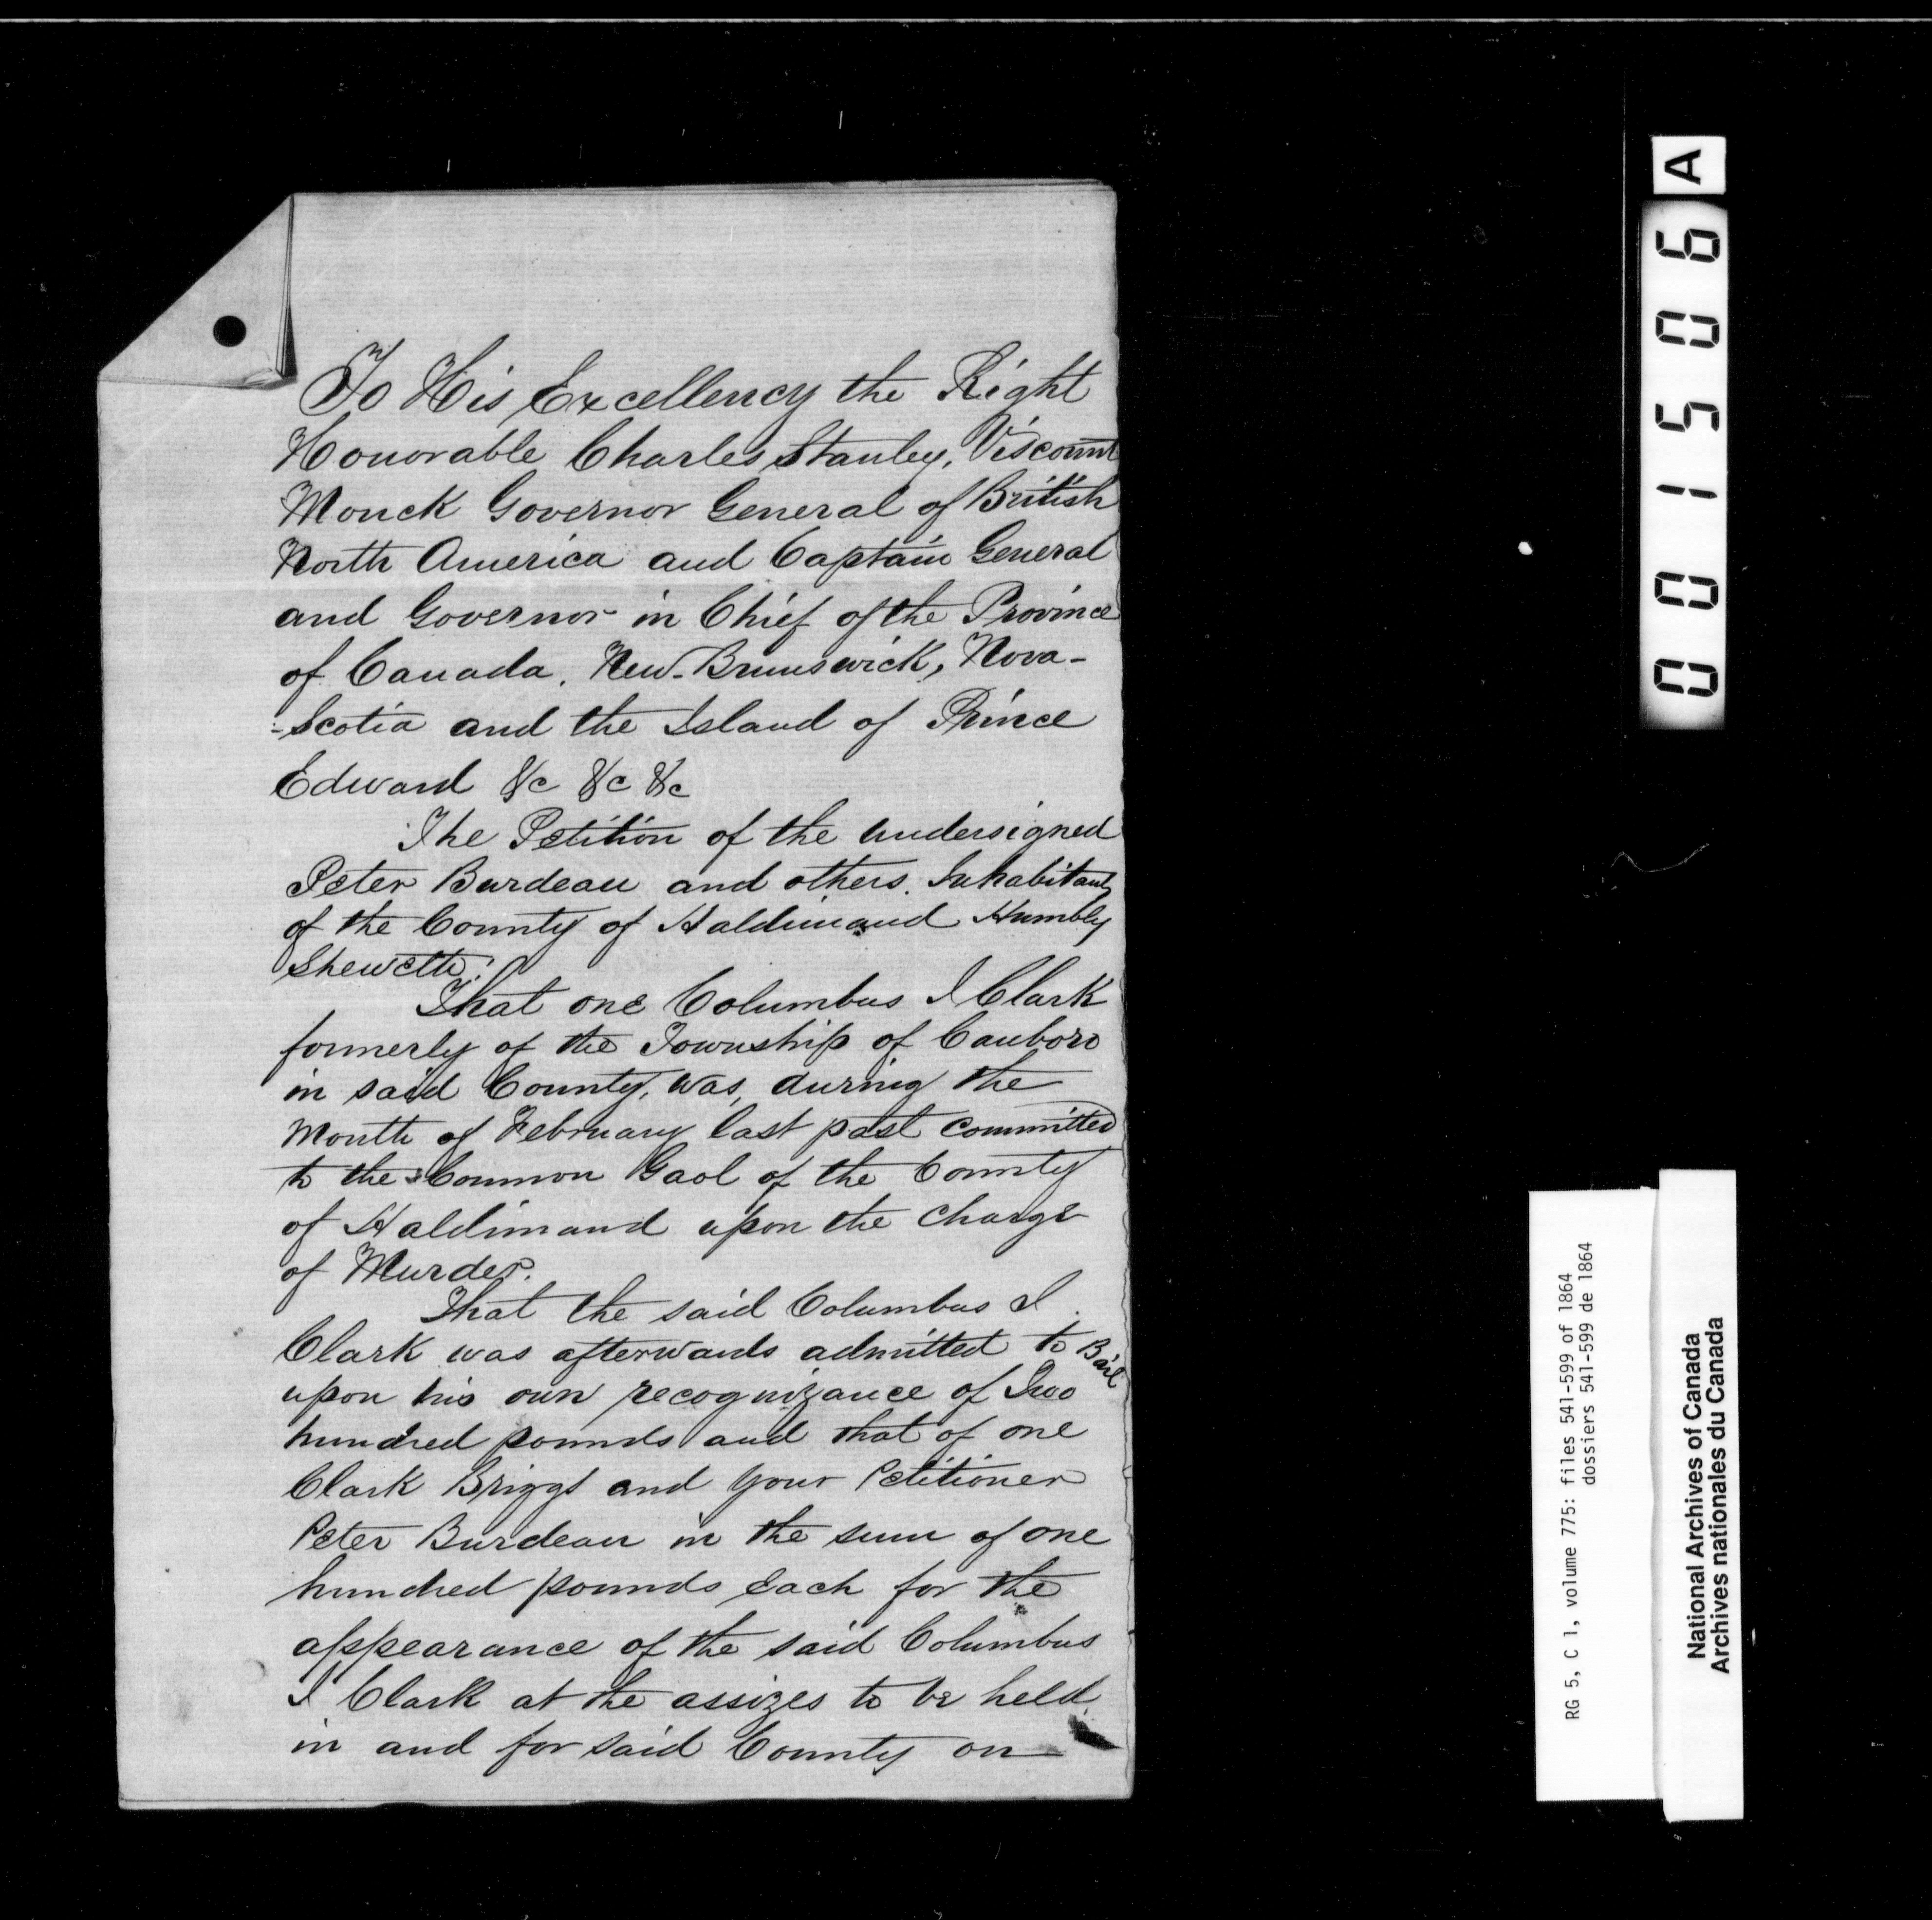 To His Excellency the Right
Honorable Charles Stanley, Viscount
Monck Governor General of British
North America and Captain General
and Governor in Chief of the Province
of Canada, New-Brunswick, Nova-
-Scotia and the Island of Prince
Edward &c &c &c
The Petition of the undersigned
Peter Burdeau and others. Inhabitants
of the County of Haldimand Humbly
Sheweth:
That one Columbus I Clark
formerly of the Township of Canboro
in said County, was, during the
Month of February last past committed
to the Common Gaol of the County
of Haldimand upon the charge
of Murder.
That the said Columbus I.
Clark was afterwards admitted to Bail
upon his own recognizance of Two
hundred pounds and that of one
Clark Briggs and your Petitioner
Peter Burdeau in the sum of one
hundred pounds each for the
appearance of the said Columbus
I Clark at the assizes to be held
in and for said County on
001506 A
RG 5, C 1, volume 775: files 541-599 of 1864
dossiers 541-599 de 1864
National Archives of Canada
Archives nationales du Canada